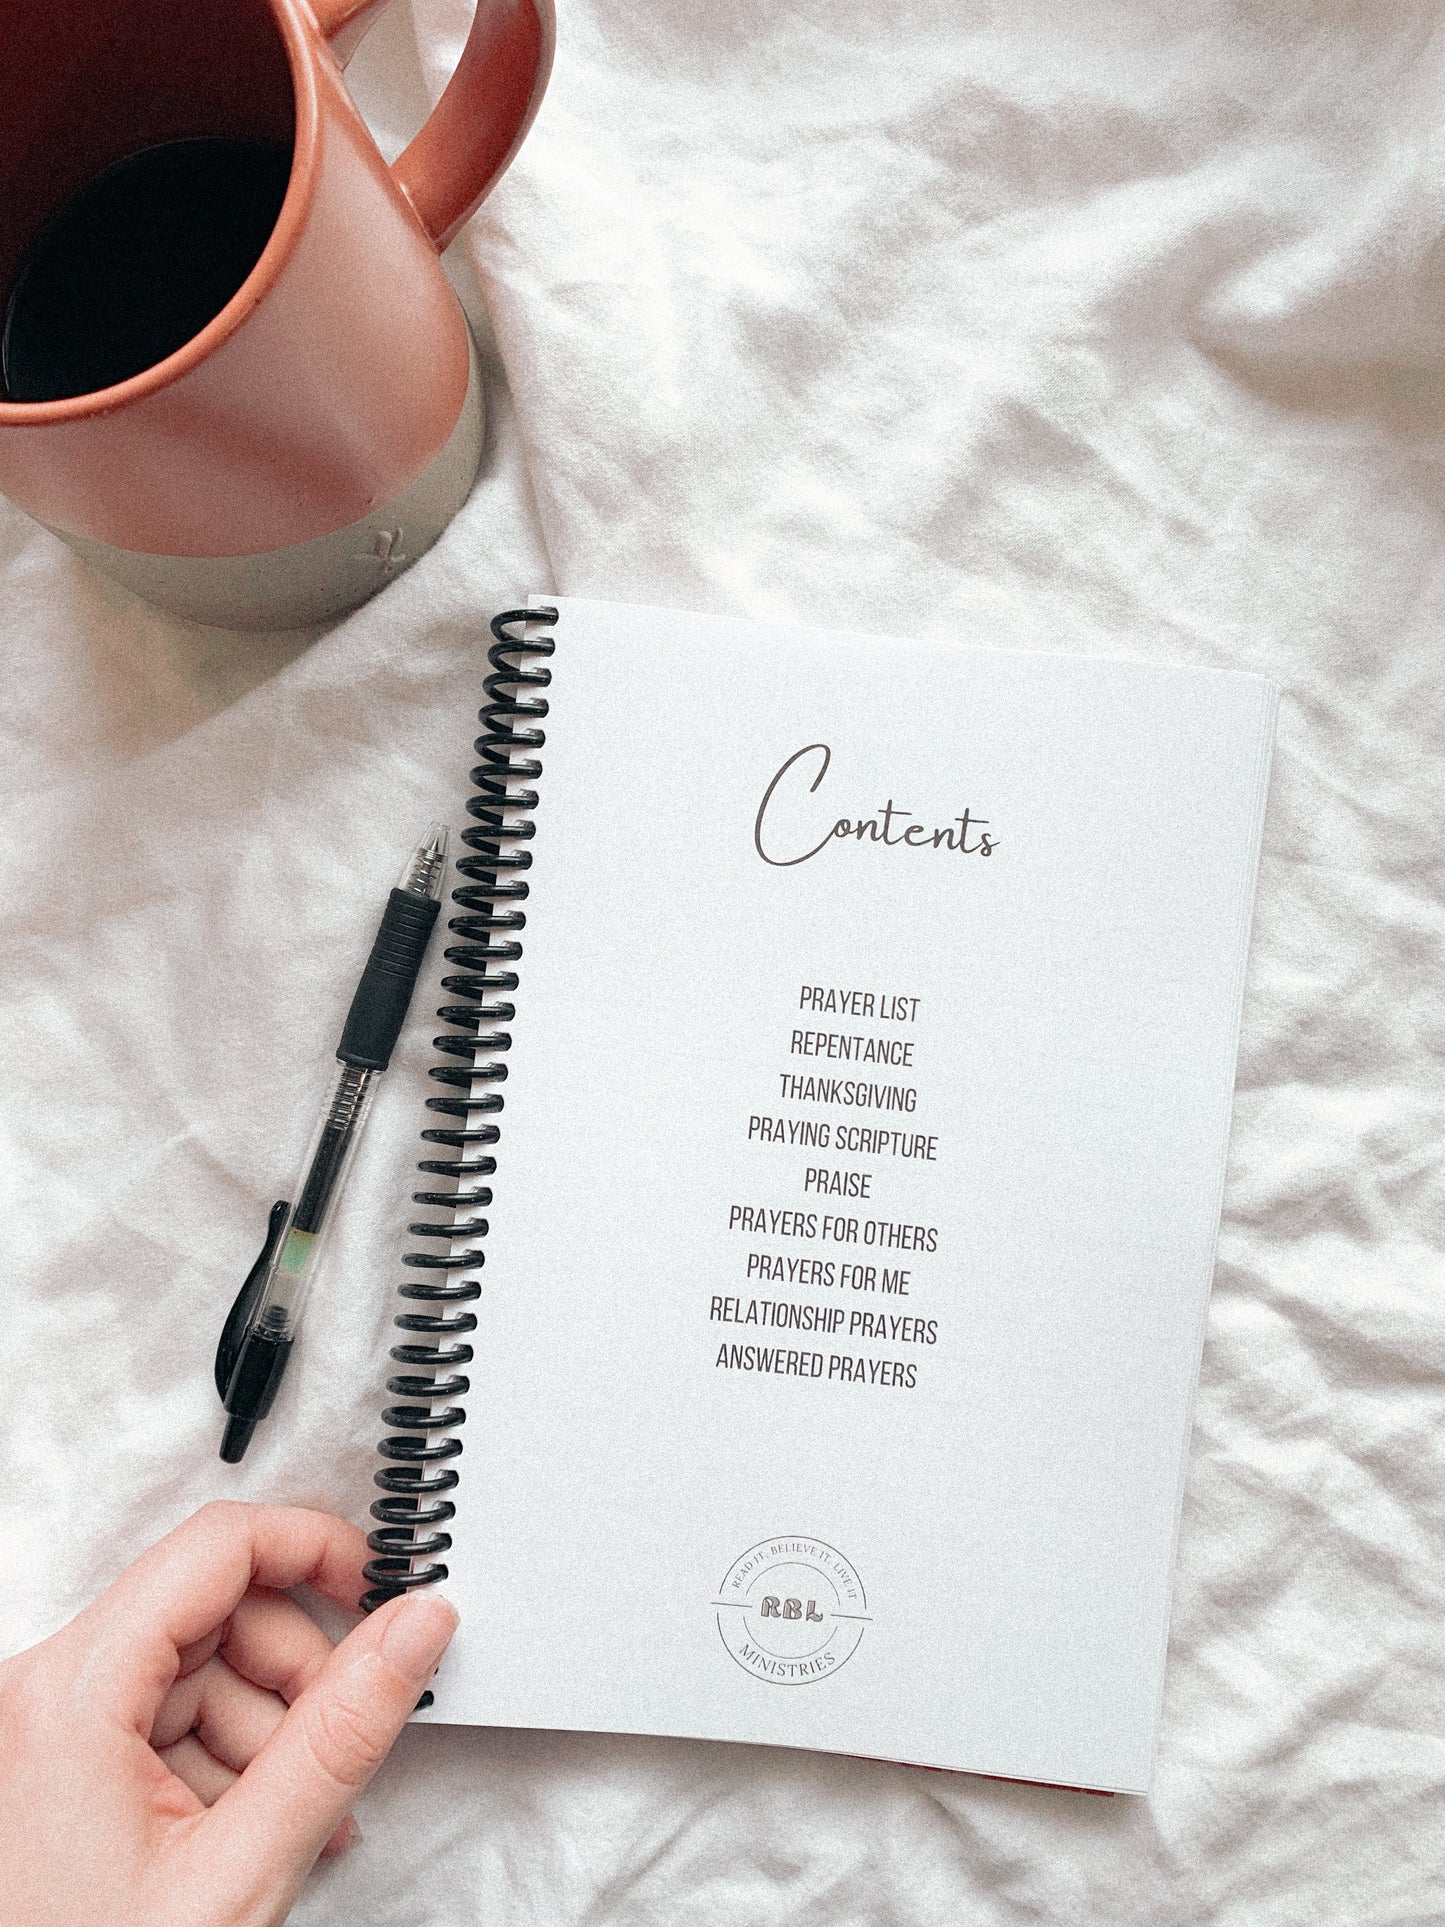 Contents
PRAYER LIST
REPENTANCE
THANKSGIVING
PRAYING SCRIPTURE
PRAISE
PRAYERS FOR OTHERS
PRAYERS FOR ME
RELATIONSHIP PRAYERS
ANSWERED PRAYERS
READ IT, BELIEVE IT, LIVE IT
RBL
MINISTRIES